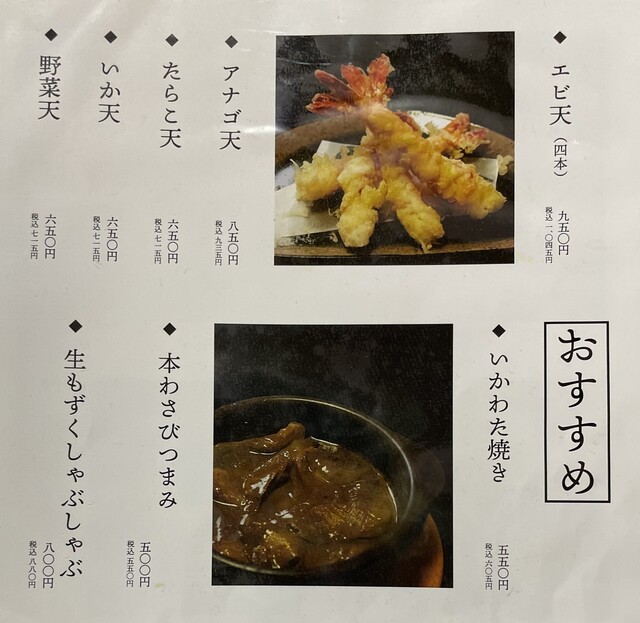 ◆エビ天(四本)
九五〇円
税込 一、〇四五円
◆アナゴ天
八五〇円
税込 九三五円
◆たらこ天
六五〇円
税込 七一五円
◆いか天
六五〇円
税込 七一五円
◆野菜天
六五〇円
税込 七一五円
おすすめ
◆いかわた焼き
五五〇円
税込 六〇五円
◆本わさびつまみ
五〇〇円
税込 五五〇円
◆生もずくしゃぶしゃぶ
八〇〇円
税込 八八〇円